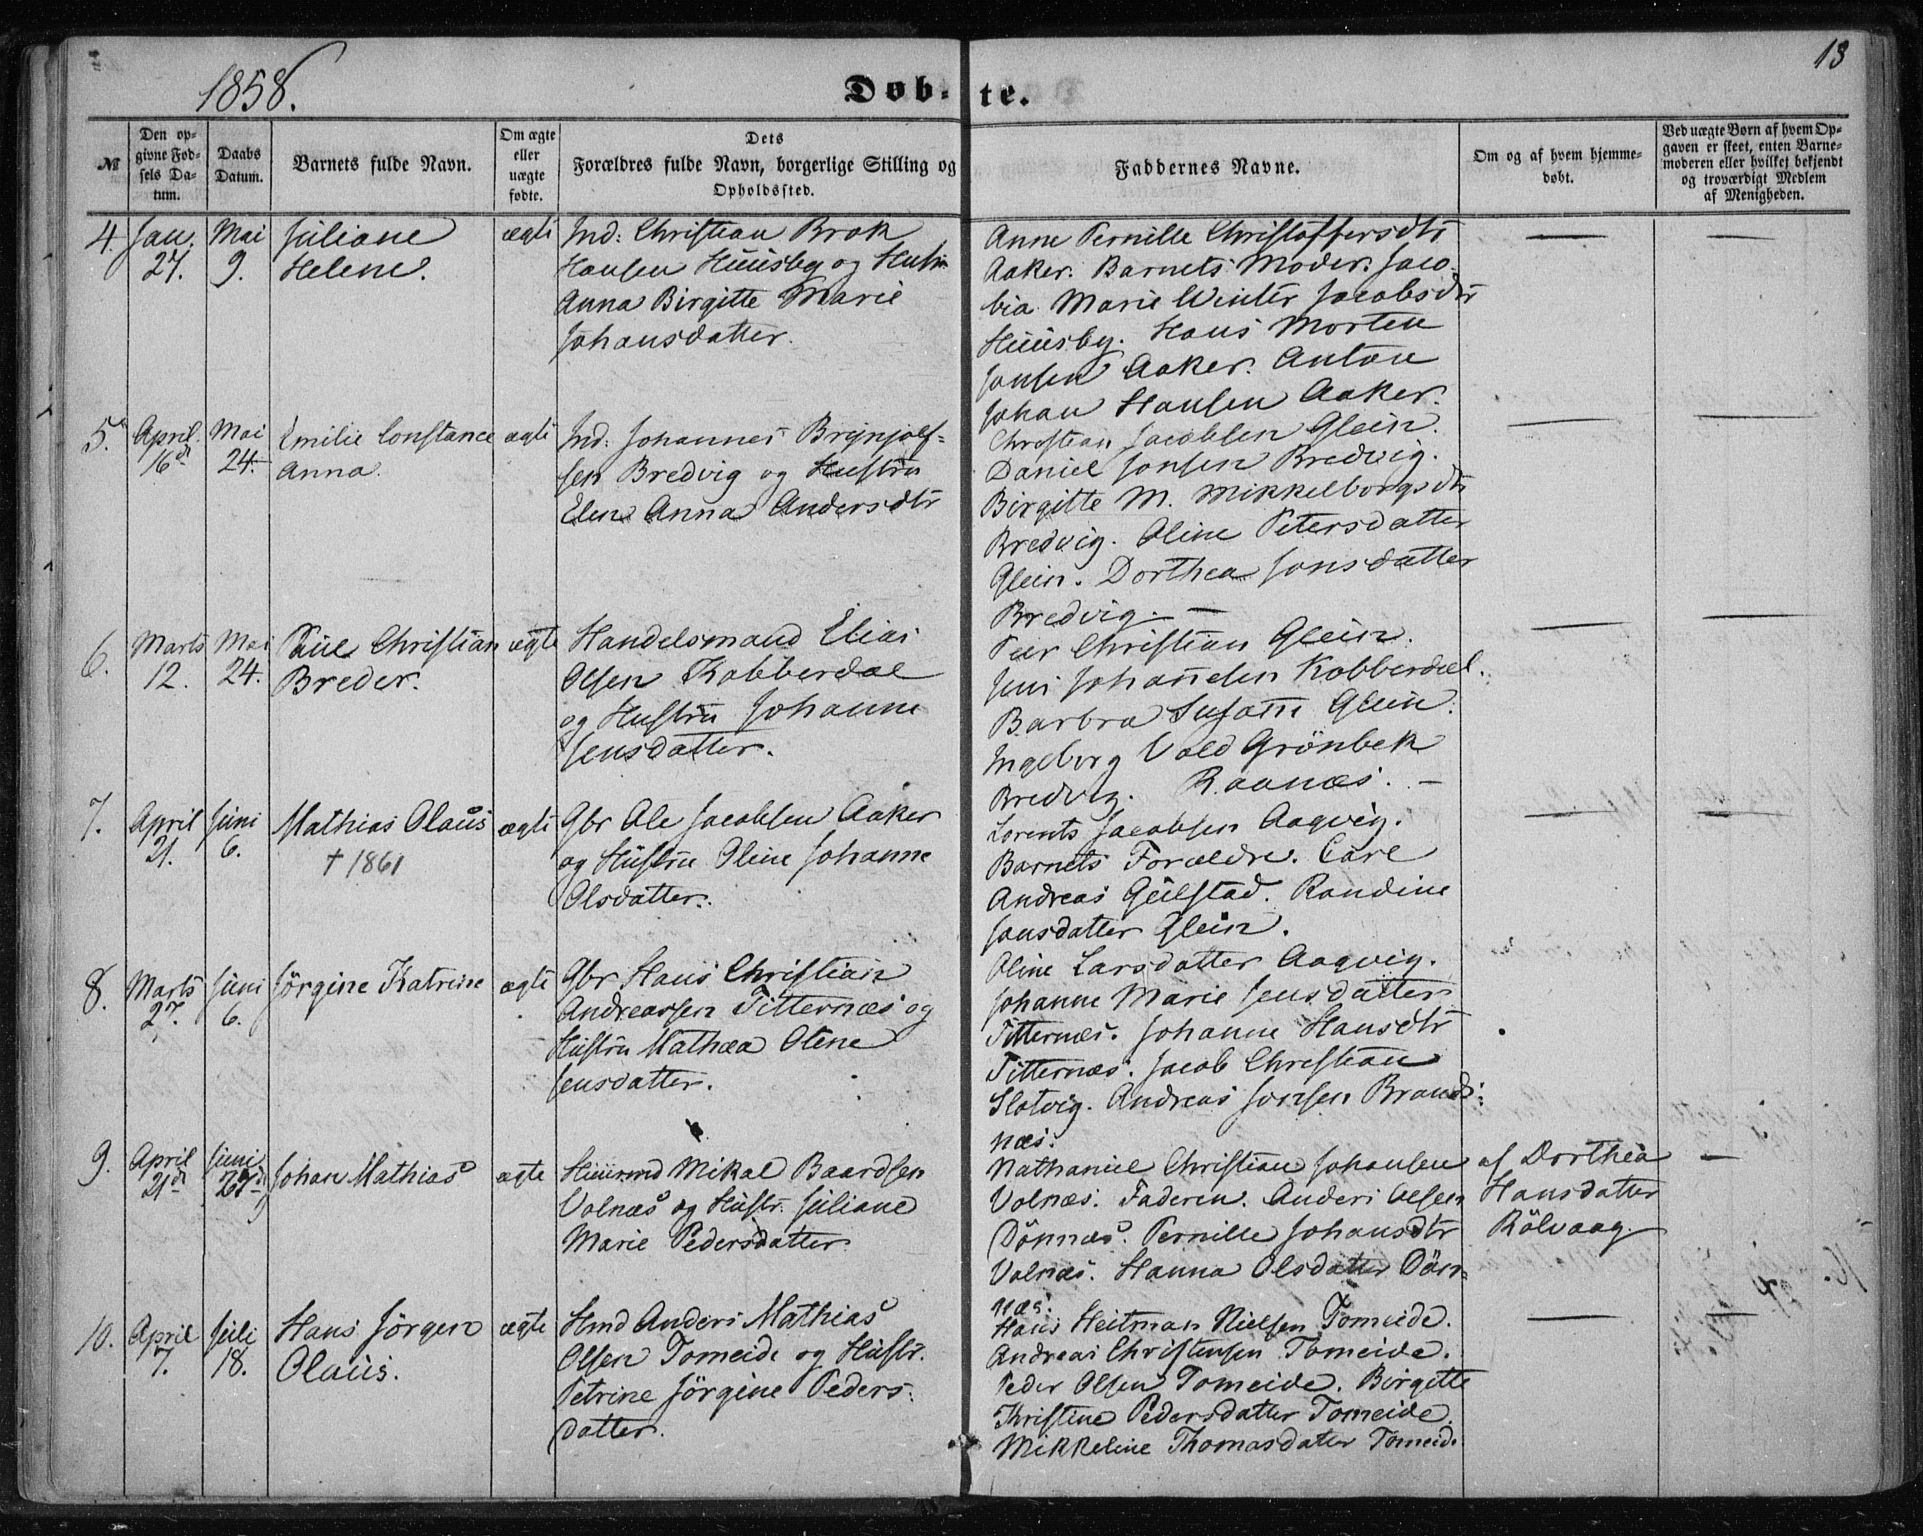 1858.
Døbte.
13
№
Den opgivne Fødsels Datum.
Daabs Datum.
Barnets fulde Navn.
Om ægte eller uægte fødte.
Dets Forældres fulde Navn, borgerlige Stilling og Opholdssted.
Faddernes Navne.
Om og af hvem hjemmedøbt.
Ved uægte Børn af hvem Opgaven er skeet, enten Barnemoderen eller hvilket bekjendt og troværdigt Medlem af Menigheden.
4. Jan. 27. Mai 9.
Juliane
Helene.
ægte
Ind: Christian Brok
Hansen Huusby og Hustr
Anna Birgitte Marie
Johansdatter.
Anne Pernille Christoffersdtr
Aaker. Barnets Moder. Jaco-
bia Marie Winter Jacobsdtr
Huusby. Hans Morten
Jonsen Aaker. Anton
Johan Hansen Aaker.
5. April 16d Mai 24.
Emilie Constance
Anna
ægte
Ind: Johannes Brynjolf-
sen Bredvig og Hustru
Elen Anna Andersdtr
Christian Jacobsen Glein.
Daniel Jonsen Bredvig.
Birgitte M. Mikkelborgsdtr
Bredvig. Oline Petersdatter
Glein. Dorthea Jonsdatter
Bredvig. —
6. Marts 12. Mai 24.
Paul Christian
Breder.
ægte
Handelsmand Elias
Olsen Kobberdal
og Hustru Johanne
Jensdatter.
Peer Christian Glein.
Jens Johannesen Kobberdal.
Barbra Susann Glein.
Ingeborg Vold Grönbek
Bredvig. Raanæs. —
7. April 21. Juni 6.
Mathias Olaus
† 1861
ægte
Gbr Ole Jacobsen Aaker
og Hustru Oline Johanne
Olsdatter.
Lorents Jacobsen Aagvig.
Barnets Forældre. Carl
Andreas Geilstad. Randine
Jonsdatter Glein.
Oline Larsdatter Aagvig.
8. Marts 27. Juni 6.
Jörgine Katrine
ægte
Gbr Hans Christian
Andreassen Titternæs og
Hustru Mathea Olene
Jensdatter.
Johanne Marie Jensdatter
Titternæs. Johanne Hansdtr
Titternæs. Jacob Christian
Slotvig. Andreas Jonsen Brands-
næs.
9. April 21d Juni 27d
Johan Mathias
ægte
Huusmd Mikal Baardsen
Volnæs og Hustr. Juliane
Marie Pedersdatter
Nathaniel Christian Johansen
Volnæs. Faderen. Anders Olsen
Dönnæs. Pernille Johansdtr
Volnæs. Hanna Olsdatter Dön-
næs.
af Dorthea
Hansdatter
Rölvaag.
10. April 7. Juli 18.
Hans Jörgen
Olaus.
ægte
Hmd Anders Mathias
Olsen Tomeide og Hustr.
Petrine Jörgine Peders-
datter.
Hans Heitman Nielsen Tomeide.
Andreas Christensen Tomeide.
Peder Olsen Tomeide. Birgitte
Christine Pedersdatter Tomeide.
Mikkeline Thomasdater Tomeide